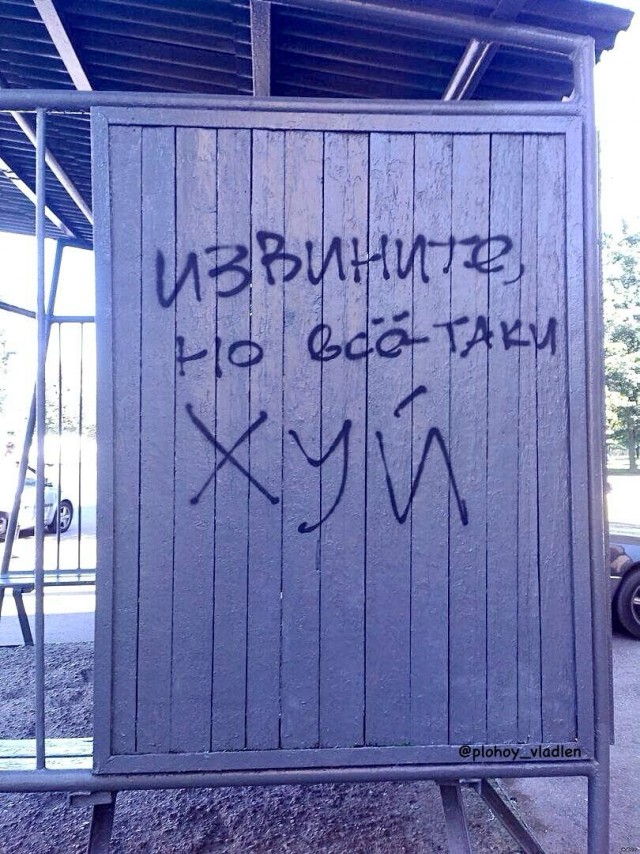 ИЗВИНИТЕ,
НО ВСЁ-ТАКИ
ХУЙ
@plohoy_vladlen